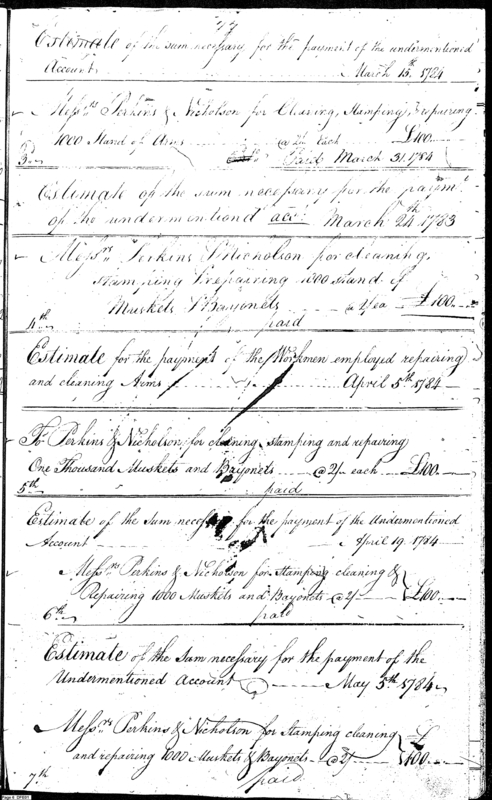 77
Estimate of the sum necessary for the payment of the undermentioned
Account March 15th 1784
Messrs Perkins & Nicholson for Cleaning, Stamping, & repairing
1000 Stand of Arms @ 2/ each £100
3d Paid March 31. 1784
Estimate of the sum necessary for the paymt
of the undermention'd acct March 24th 1783
Messrs Perkins & Nicholson for cleaning,
stamping & repairing 1000 stand of
Muskets & Bayonets a 2/ ea £100
4th paid
Estimate for the payment of the Workmen employed repairing
and cleaning Arms April 5th 1784
To Perkins & Nicholson, for cleaning, stamping and repairing
One Thousand Muskets and Bayonets @ 2/ each £100
5th paid
Estimate of the Sum necessary for the payment of the Undermentioned
Account April 19. 1784
Messrs Perkins & Nicholson for Stamping cleaning &
Repairing 1000 Muskets and Bayonets @ 2/ £100
6th paid
Estimate of the Sum necessary for the payment of the
Undermentioned Account May 5th 1784
Messrs Perkins & Nicholson for Stamping cleaning £
and repairing 1000 Muskets & Bayonets @ 2/ 100
7th paid